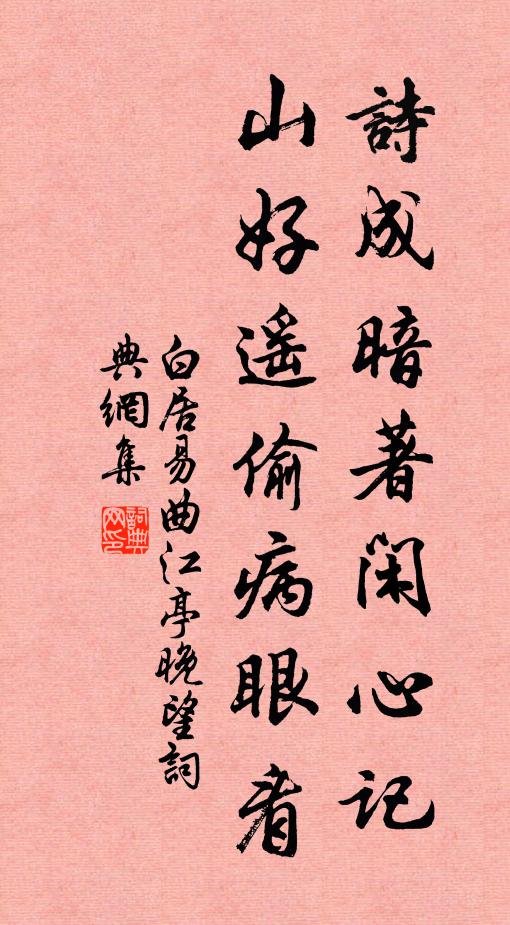 詩成暗著閑心記
山好遥偷病眼看
白居易曲江亭晚望詞
典網集
詞典
网印